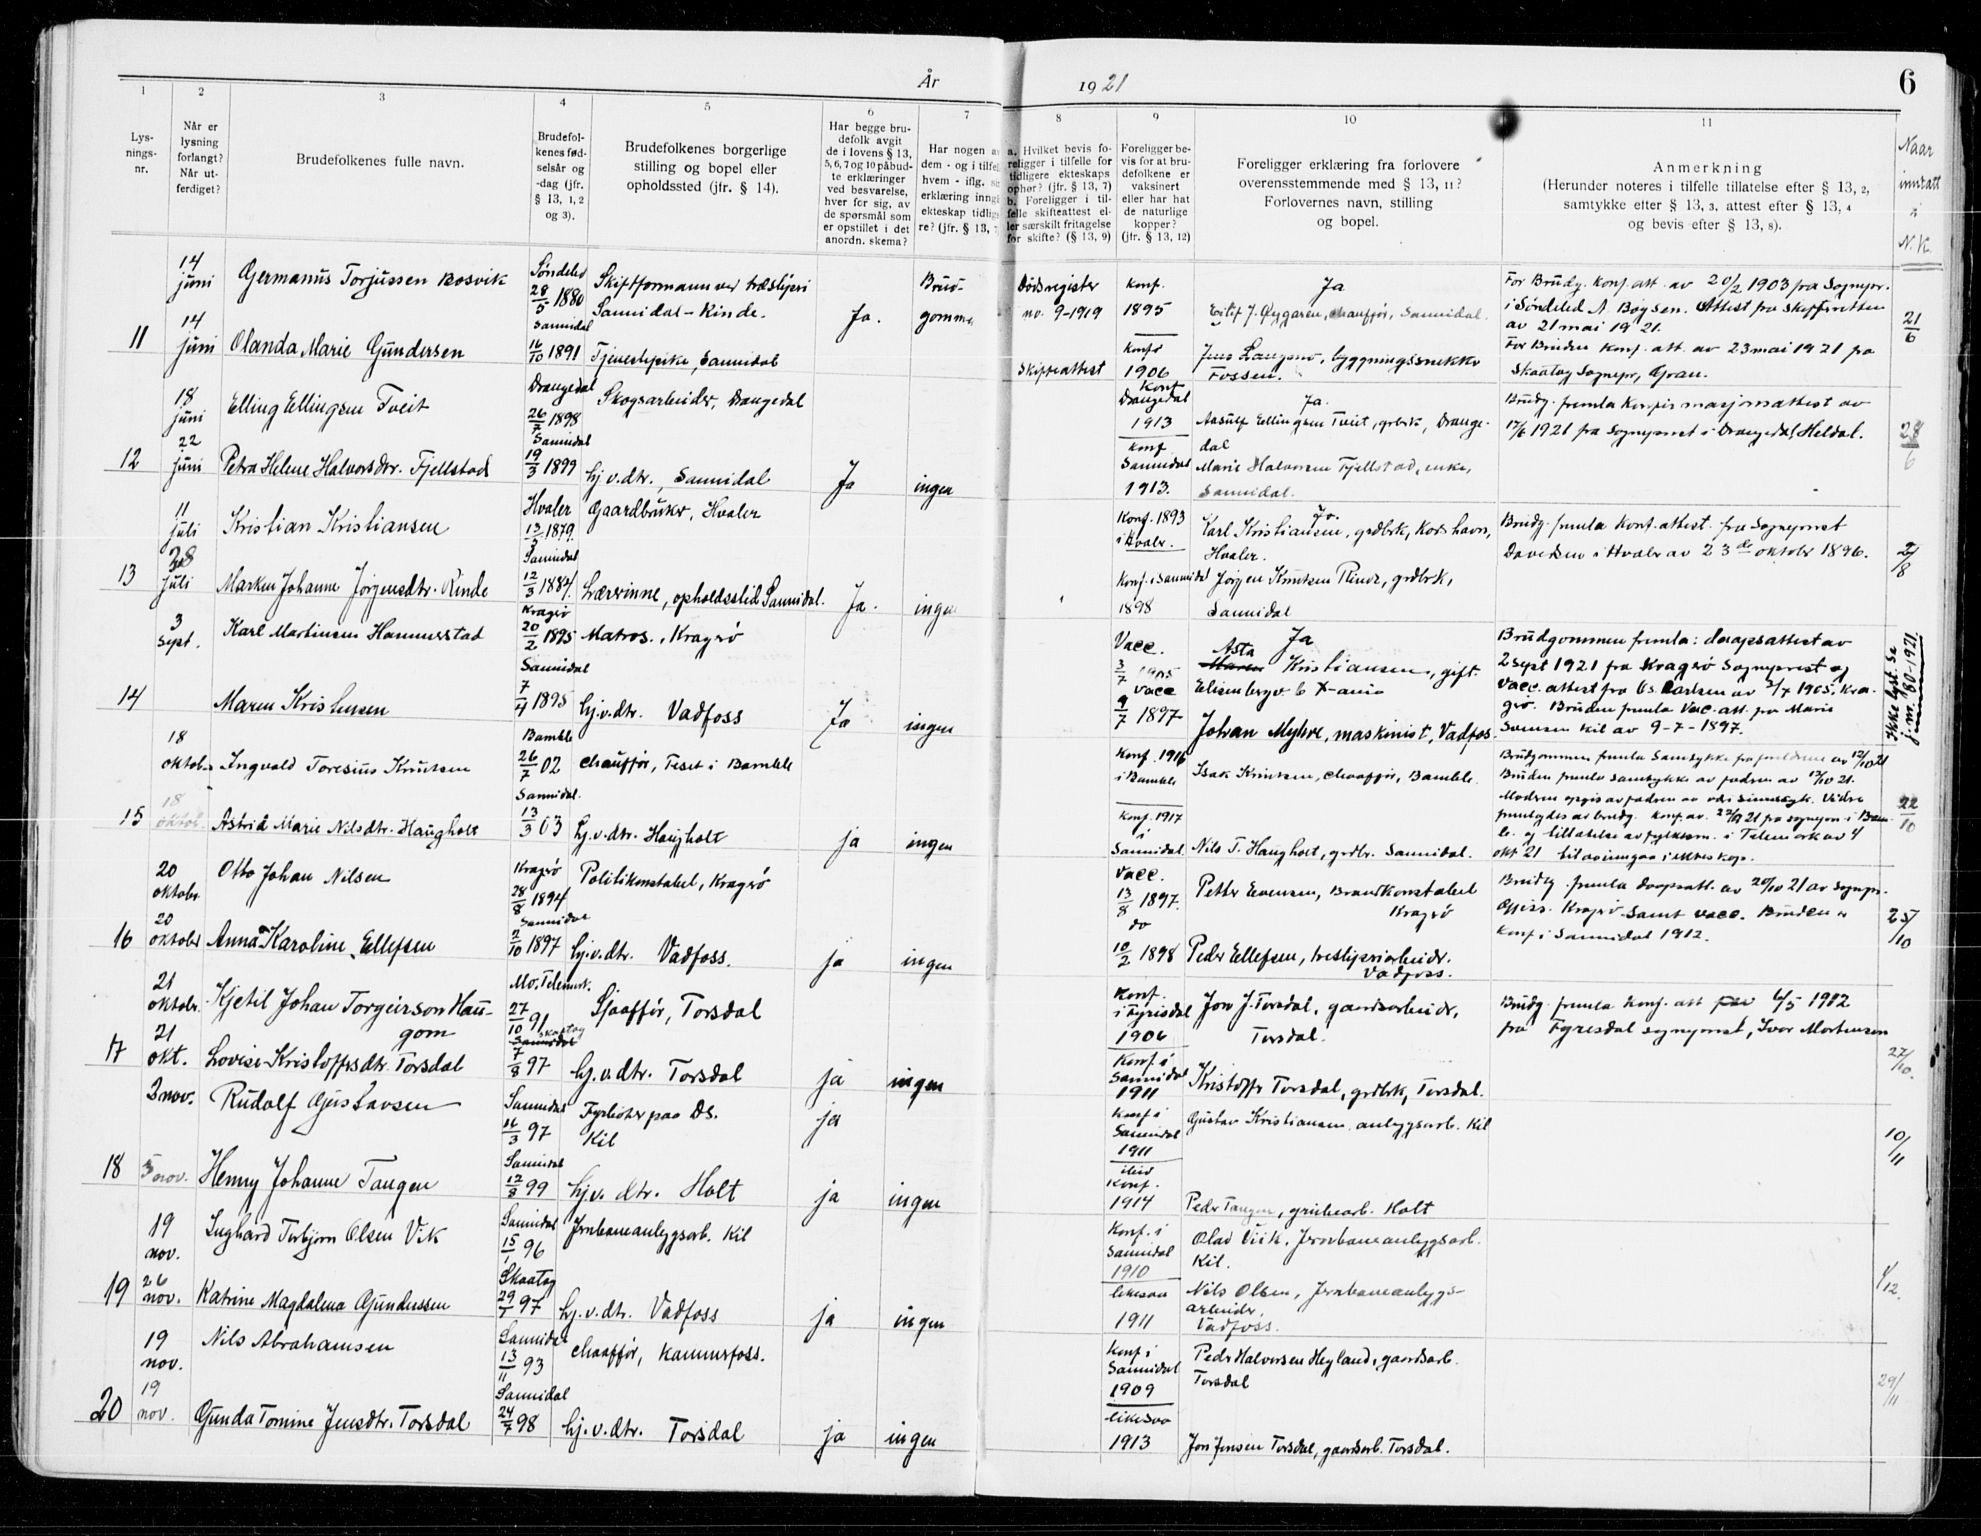 År 1921
6
1 2 3 4 5 6 7 8 9 10 11
Lys-
nings-
nr.
Når er
lysning
forlangt?
Når ut-
ferdiget?
Brudefolkenes fulle navn.
Brudefol-
kenes fød-
selsår og
-dag (jfr.
§ 13, 1, 2
og 3).
Brudefolkenes borgerlige
stilling og bopel eller
opholdssted (jfr. § 14).
Har begge bru-
defolk avgit
de i lovens § 13,
5, 6, 7 og 10 påbud-
te erklæringer
ved besvarelse,
hver for sig, av
de spørsmål som
er opstillet i det
anordn. skema?
Har nogen a
dem - og i tilfel
hvem - iflg. si
erklæring inng
ekteskap tidlig
re? (jfr. § 13,
a. Hvilket bevis fo-
religger i tilfelle for
tidligere ekteskaps
ophør? (jfr. § 13, 7)
b. Foreligger i til-
felle skifteattest el-
ler særskilt fritagelse
for skifte? (§ 13, 9)
Foreligger be-
vis for at bru-
defolkene er
vaksinert
eller har hat
de naturlige
kopper?
(jfr. § 13, 12)
Foreligger erklæring fra forlovere
overensstemmende med § 13, 11?
Forlovernes navn, stilling
og bopel.
Anmerkning
(Herunder noteres i tilfelle tillatelse efter § 13, 2,
samtykke efter § 13, 3, attest efter § 13, 4
og bevis efter § 13, 8).
Naar
inntatt
i
N.K.
14 juni Germanus Torjussen Bosvik Søndeled 28/5 1880 Skiftformann ved træsliperi
Sannidal - Kinde. Ja. Brud-
gomme Dødsregister
no. 9-1919 konf.
1895 Ja
Eilif J. Øygaren, chauffør, Sannidal. For Brudg. konf. att. av 20/2 1903 fra Sognepr.
i Søndeled A Boysen. Attest fra skifteretten
av 21 mai 1921.
11 14 juni Olanda Marie Gundersen Sannidal 16/10 1891 Tjenestepike, Sannidal Skifteattest konf.
1906 Jens Langmo, byggningssnekker
Fossen. For Bruden konf. att. av 23 mai 1921 fra
Skaatøy Sognepr, Gran. 21/6
18 juni Elling Ellingsen Tveit Drangedal 26/7 1898 Skogsarbeider, Drangedal konf
Drangedal
1913 Ja.
Aasulf Ellingsen Tveit, grbrk, Drange-
dal Brudg. fremla konfirmasjonsattest av
17/6 1921 fra Sogneprest i Drangedal Heldal.
12 22 juni Petra Helene Halvorsdtr. Fjellstad Sannidal 19/3 1899 hj.v.dtr., Sannidal Ja ingen konf
Sannidal
1913. Marie Halvorsen Fjellstad, enke,
Sannidal. 28/6
11 juli Kristian Kristiansen Hvaler 13/5 1879. Gaardbruker, Hvaler Konf. 1893
i Hvaler. Ja.
Karl Kristiansen, grdbrk, Korshavn,
Hvaler. Brudg. fremla konf. attest. fra Sogneprest
Davidsen i Hvaler av 23 de oktober 1896.
13 28 juli Maren Johanne Jørgensdtr. Rinde Sannidal 12/3 1884. Lærerinne, opholdssted Sannidal. Ja. ingen Konf. i Sannidal
1898 Jørgen Knutsen Rinde, grdbrk,
Sannidal 2/8
3 sept. Karl Martinsen Hammerstad Kragerø 20/2 1895 Matros., Kragerø Vacc.
3/7 1905 Ja
Asta
Kristiansen, gift.
Elisenbergv. 6 X-ania Brudgommen fremla: daapsattest av
2 sept 1921 fra Kragerø Sogneprest og
Vacc. attest fra Carlsen av 3/7 1905, Kra-
gerø. Bruden fremla Vac. att. fra Marie
Svensen Kil av 9-7-1897.
14 Maren Kristensen Sannidal 7/4 1895 hj.v.dtr. Vadfoss Ja ingen vacc
9/7 1897 Johan Myhre, maskinist, Vadfos Ikke lyst. Se
j.nr. 80-1921.
18 oktober Ingvald Toresius Knutsen Bamble 26/7 02 chauffør, Feset i Bamble Konf. 1916
i Bamble Isak Knutsen, chauffør, Bamble. Brudgommen fremla Samtykke fra foreldrene av 12/10 21
Bruden fremla samtykke av faderen av 12/10 21.
Moderen opgis av faderen at være sinnssyk. Videre
fremlagdes av brudg. konf. av. 21 fra sognepr. i Bam-
ble og tillatelse av fylkesm. i Telemark av 4
okt 21 til at inngaa i ekteskap.
15 18 oktob. Astrid Marie Nilsdtr. Haugholt Sannidal. 13/3 03 hj.v.dtr. Haugholt ja ingen konf. 1917
i
Sannidal Nils T. Haugholt, grdbr. Sannidal. 22/10
20 oktober Otto Johan Nilsen Kragerø 28/8 1894 Politikonstabel, Kragerø Vacc.
13/8 1897. Petter Evensen, Brandkonstabel
Kragerø Brudg. fremla daapsatt. av 20/10 21 av Sognepr.
Kragerø samt vacc. Bruden er
konf. i Sannidal 1912.
16 20 oktober Anna Karoline Ellefsen Sannidal 2/10 1897 hj.v.dtr. Vadfoss. ja ingen do
10/2 1898 Peder Ellefsen, tresliperiarbeider.
Vadfoss. 25/10
21 oktober. Kjetil Johan Torgeirson Hau-
gom Mo. Telemark. 27/10 91 Sjaaffør, Torsdal Konf.
i Fyrisdal
1906 Jon J. Torsdal, gaardsarbeider,
Torsdal. Brudg. fremla konf. att 6/5 1912
fra Fyresdal sogneprest, Ivar Mortenson
17 21 okt. Lovise Kristoffersdtr. Torsdal Skaatøy Sannidal 7/8 97 hj.v.dtr. Torsdal ja ingen Konf. i
Sannidal
1911 Kristoffer Torsdal, grdbrk, Torsdal. 27/10.
3 nov. Rudolf Gustavsen Sannidal 16/3 97 Fyrbøter paa Ds.
Kil ja konf i
Sannidal
1911 Gustav Kristiansen anleggsarb. Kil
18 5 nov. Henny Johanne Tangen Sannidal 12/8 99 hj.v. dtr. Holt ja ingen konf.
1914 Peder Tangen, grubearb. Holt 10/11
19 nov. Inghard Torbjørn Olsen Vik Sannidal 15/1 96 Jernbaneanleggsarb. Kil konf. i
Sannidal
1910 Olav Vik, Jernbaneanleggsarb.
Kil.
19 26 nov. Katrine Magdalena Gunderssen Skaatøy 29/1 97 hj.v.dtr. Vadfoss ja ingen likesaa
1911 Nils Olsen, Jernbaneanleggs-
arbeider,
Vadfoss. 1/12.
19 nov. Nils Abrahamsen Sannidal 13/11 93 chaaffør, Kammerfoss. konf i
Sannidal
1909 Peder Halvorsen Heyland, gaardsarb.
Torsdal
20 19 nov. Gunda Tomine Jensdtr. Torsdal Sannidal 24/7 98 hj.v.dtr. Torsdal ja ingen likesaa
1913 Jon Jensen Torsdal, gaardsarb. Torsdal. 29/11